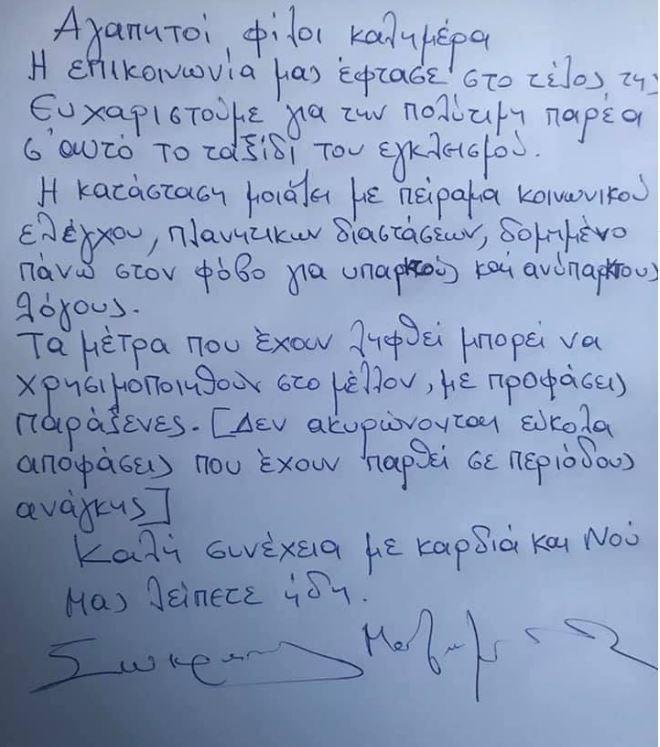 Αγαπητοί, φίλοι καλημέρα
Η επικοινωνία μας έφτασε στο τέλος της
Ευχαριστούμε για την πολύτιμη παρέα
σ' αυτό το ταξίδι του εγκλεισμού.
Η κατάσταση μοιάζει με πείραμα κοινωνικού
ελέγχου, πλανητικων διαστάσεων, δομημένο
πάνω στον φόβο για υπαρκτούς και ανύπαρκτους
λόγους.
Τα μέτρα που έχουν ληφθεί μπορεί να
χρησιμοποιηθούν στο μέλλον, με προφάσεις
παράξενες. [Δεν ακυρώνονται εύκολα
αποφάσεις που έχουν παρθεί σε περιόδους
ανάγκης]
Καλή συνέχεια με καρδιά και Νού
Μας λείπετε ήδη.